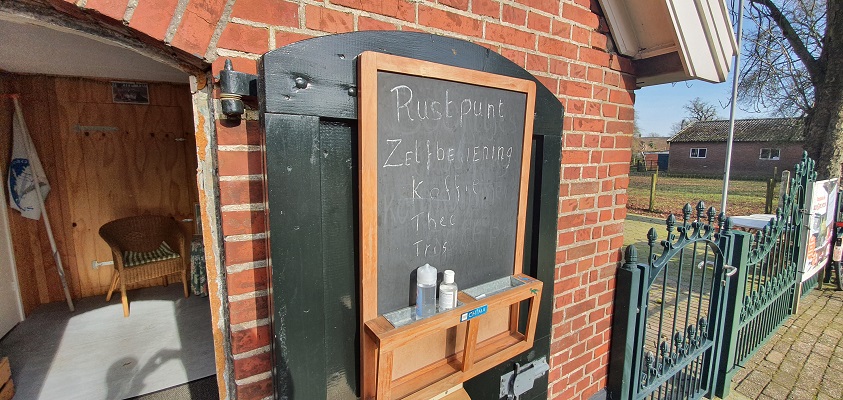 Rustpunt
Zelfbediening
Koffie
Thee
Fris